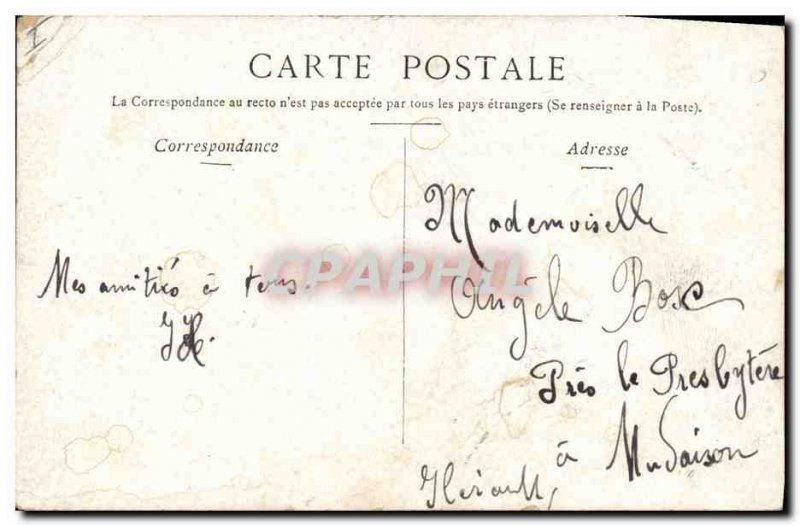 CARTE POSTALE
La Correspondance au recto n'est pas acceptée par tous les pays étrangers (Se renseigner à la Poste).
Correspondance
Mes amitiés à tous.
Adresse
Mademoiselle
Angèle Bosc
Près le Presbytère
à Mudaison
Hérault
CPAPHIL